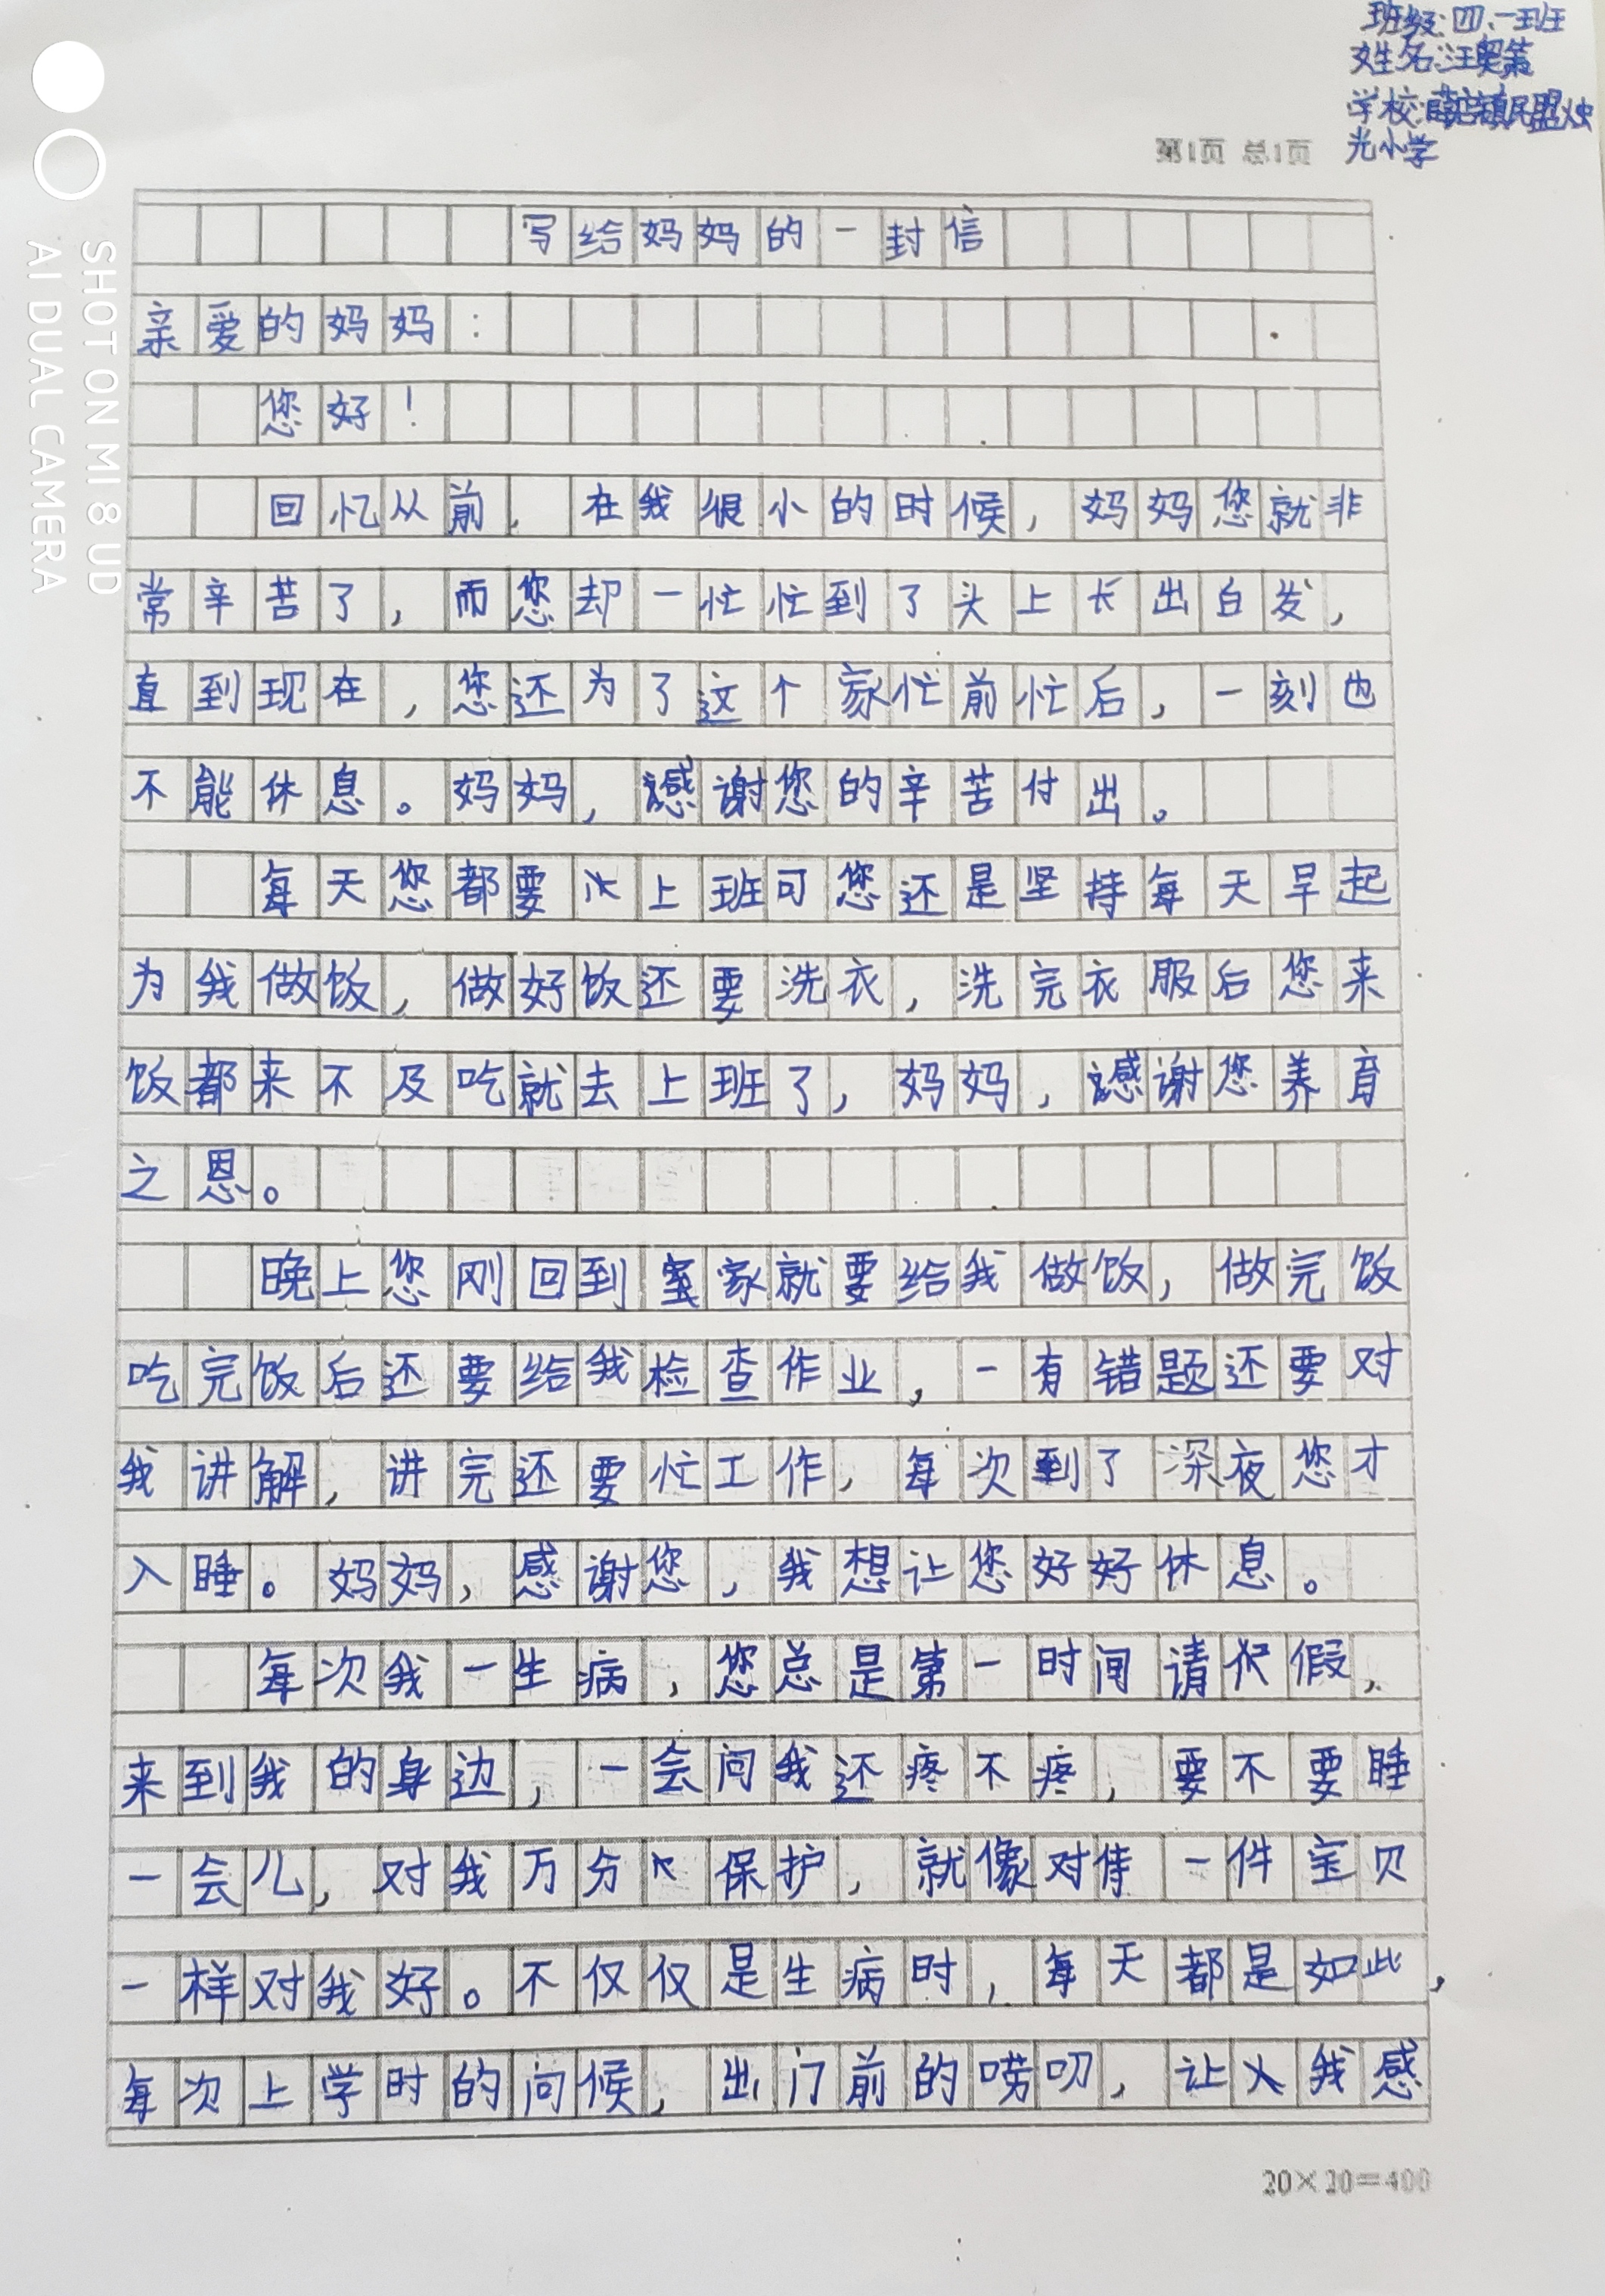 班级:四、一班
姓名:汪奥
学校:店镇民盟烛
光小学
第1页 总1页
写给妈妈的一封信
亲爱的妈妈:
您好!
回忆从前,在我很小的时候,妈妈您就非
常辛苦了,而您却一忙忙到了头上长出白发,
直到现在,您还为了这个家忙前忙后,一刻也
不能休息。妈妈,感谢您的辛苦付出。
每天您都要上班可您还是坚持每天早起
为我做饭,做好饭还要洗衣,洗完衣服后您来
饭都来不及吃就去上班了,妈妈,感谢您养育
之恩。
晚上您刚回到家就要给我做饭,做完饭
吃完饭后还要给我检查作业,一有错题还要对
我讲解,讲完还要忙工作,每次到了深夜您才
入睡。妈妈,感谢您,我想让您好好休息。
每次我一生病,您总是第一时间请假,
来到我的身边,一会问我还疼不疼,要不要睡
一会儿,对我万分保护,就像对待一件宝贝
一样对我好。不仅仅是生病时,每天都是如此,
每次上学时的问候,出门前的唠叨,让我感
20×20=400
SHOT ON MI 8 UD
AI DUAL CAMERA